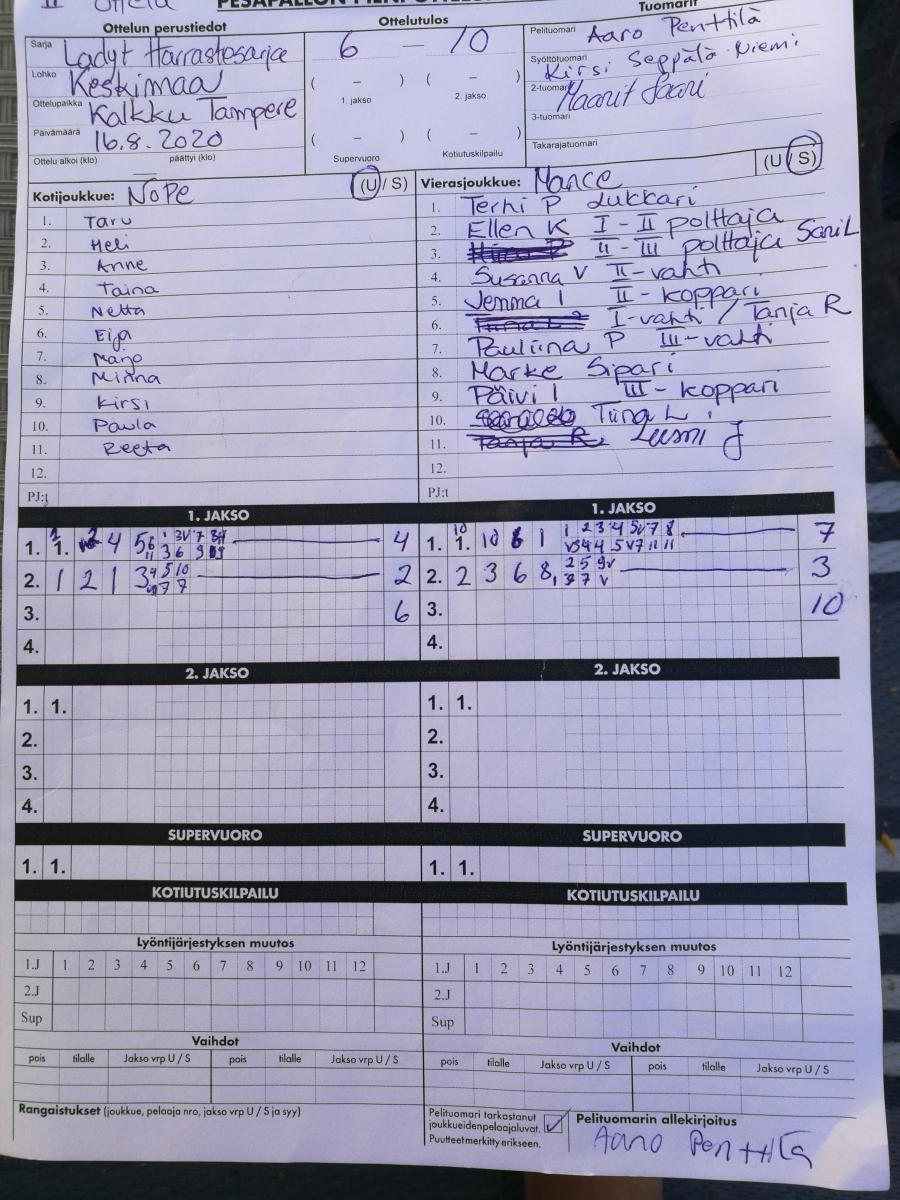 II Ottelu
Ottelun perustiedot
Sarja Ladyt Harrastesarja
Lohko Keskimaa
Ottelupaikka Kalkku Tampere
Päivämäärä 16.8.2020
Ottelu alkoi (klo) päättyi (klo)
Ottelutulos
6 — 10
( – ) ( – )
1. jakso 2. jakso
( – ) ( – )
Supervuoro Kotiutuskilpailu
Tuomarit
Pelituomari Aaro Penttilä
Syöttötuomari Kirsi Seppälä-Niemi
2-tuomari Maarit Saari
3-tuomari
Takarajatuomari
Kotijoukkue: Nope (U / S)
1. Taru
2. Heli
3. Anne
4. Taina
5. Netta
6. Eija
7. Marjo
8. Minna
9. Kirsi
10. Paula
11. Reeta
12.
PJ:t
Vierasjoukkue: Mance (U / S)
1. Terhi P Lukkari
2. Ellen K I - II polttaja
3. II - III polttaja Sari L
4. Susanna V II-vahti
5. Jemma I II - koppari
6. I-vahti / Tanja R
7. Pauliina P III-vahti
8. Marke Sipari
9. Päivi I III - koppari
10. Tiina L
11. Tanja R. Lumi J
12.
PJ:t
1. JAKSO
1. 1. 4 5 4
2. 1 2 1 3 2
3. 6
4.
1. JAKSO
1. 1. 10 1 7
2. 2 3 6 8 3
3. 10
4.
2. JAKSO
1. 1.
2.
3.
4.
2. JAKSO
1. 1.
2.
3.
4.
SUPERVUORO
1. 1.
SUPERVUORO
1. 1.
KOTIUTUSKILPAILU
KOTIUTUSKILPAILU
Lyöntijärjestyksen muutos
1.J 1 2 3 4 5 6 7 8 9 10 11 12
2.J
Sup
Lyöntijärjestyksen muutos
1.J 1 2 3 4 5 6 7 8 9 10 11 12
2.J
Sup
Vaihdot
pois tilalle Jakso vrp U / S pois tilalle Jakso vrp U / S
Vaihdot
pois tilalle Jakso vrp U / S pois tilalle Jakso vrp U / S
Rangaistukset (joukkue, pelaaja nro, jakso vrp U / S ja syy)
Pelituomari tarkastanut
joukkueidenpelaajaluvat.
Puutteet merkitty erikseen.
Pelituomarin allekirjoitus
Aaro Penttilä